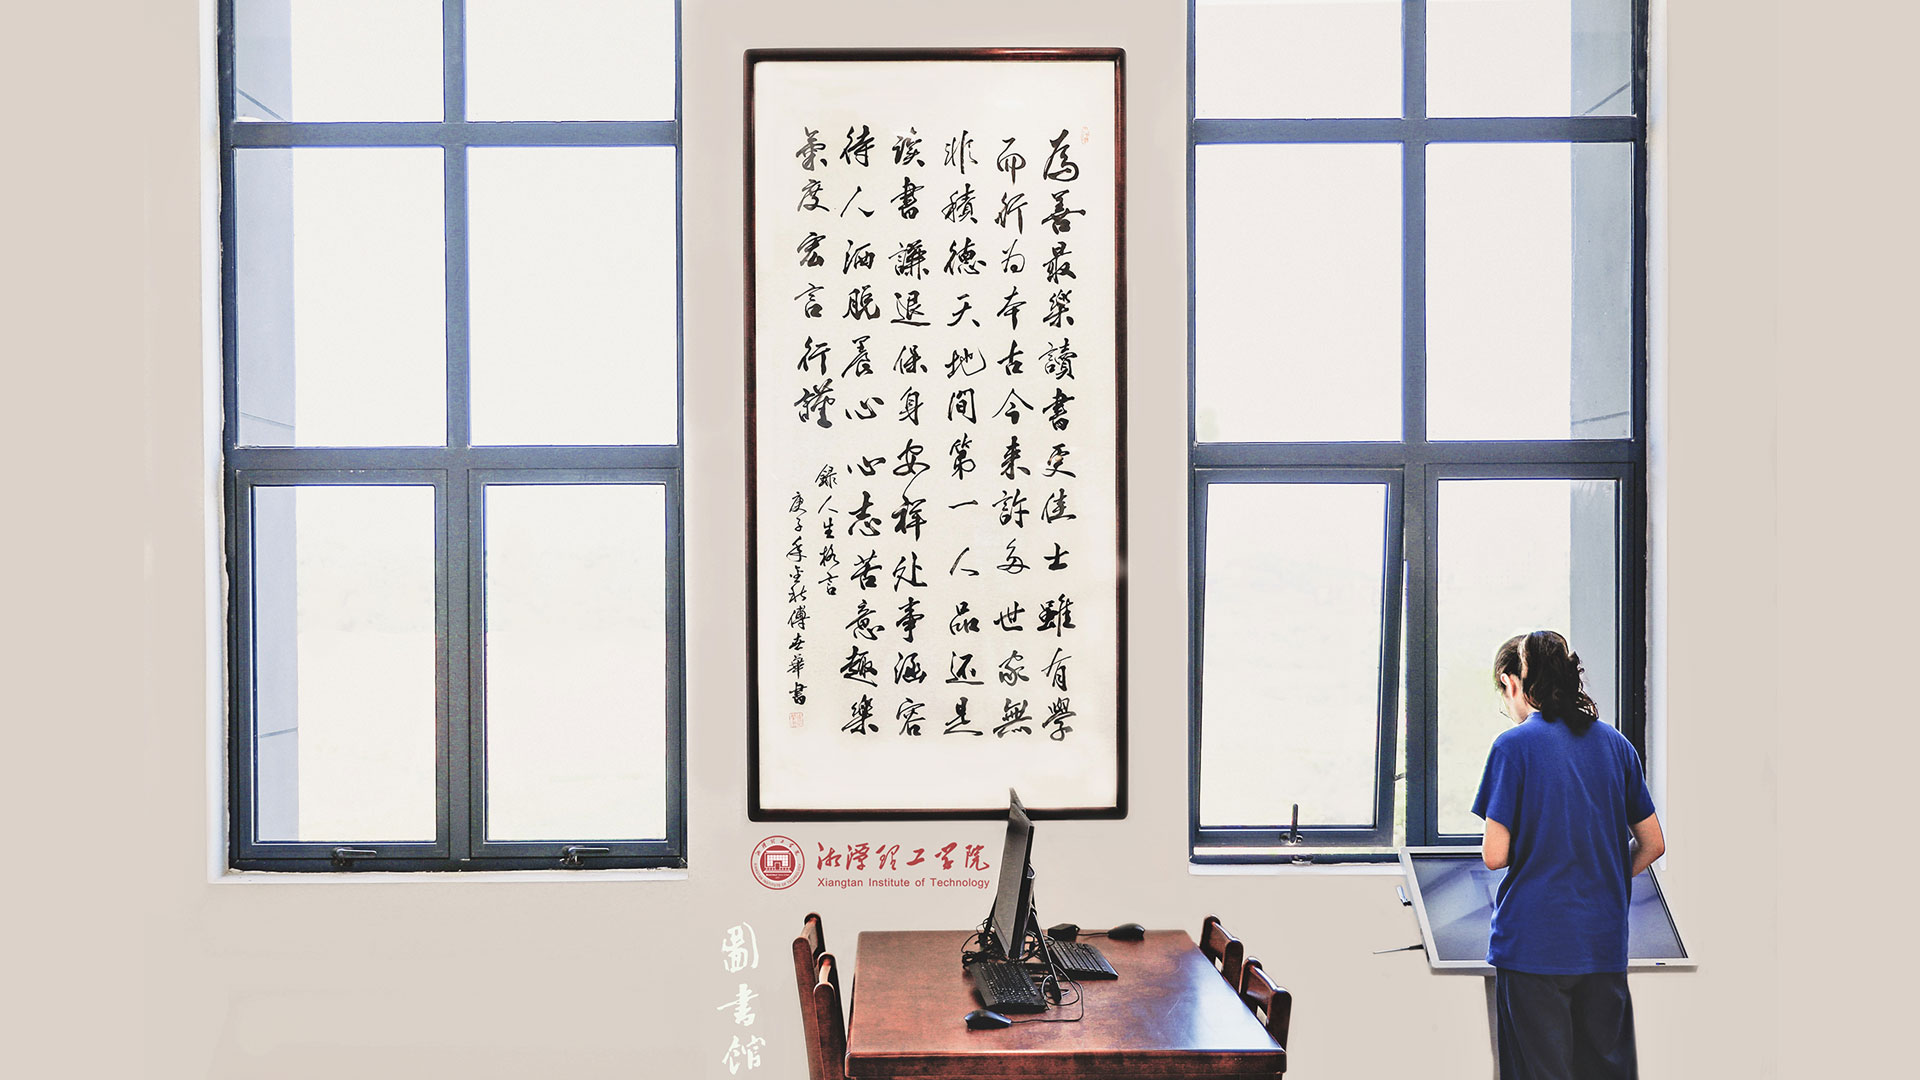 為善最樂讀書更佳士雖有學
而行为本古今来許多世家無
非積德天地间第一人品还是
读書謙退保身安祥处事涵容
待人洒脱養心心志苦意趣樂
氣度宏言行謹
録人生格言
庚子年金秋傅世華書
湘潭理工学院
Xiangtan Institute of Technology
圖書館